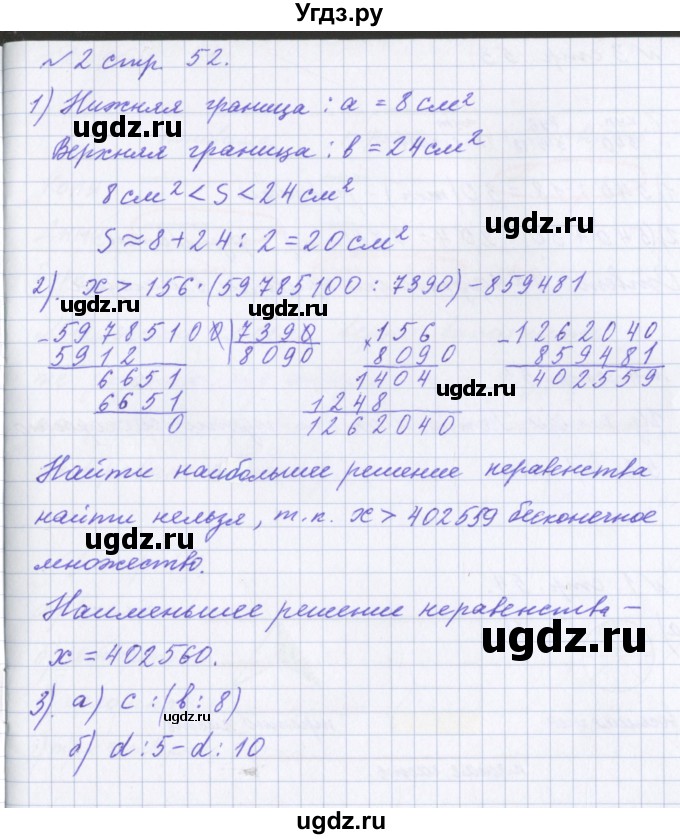 Угдз.ру
№2 стр. 52.
1) Нижняя граница : a = 8 см²
ugdz.ru
Верхняя граница : b = 24 см²
8 см² < S < 24 см²
ugdz.ru
S ≈ 8 + 24 : 2 = 20 см²
2). x > 156 · (59785100 : 7390) - 859481
ugdz.ru ugdz.ru
- 59785100 | 7390
5912 8090
6651
6651
0
× 156
8090
1404
1248
1262040
- 1262040
859481
402559
ugdz.ru
Найти наибольшее решение неравенства
найти нельзя, т.к. x > 402559 бесконечное
ugdz.ru
множество.
Наименьшее решение неравенства –
ugdz.ru
x = 402560.
3). а) c : (b : 8)
ugdz.ru
б) d : 5 - d : 10
ugdz.ru
ugdz.ru